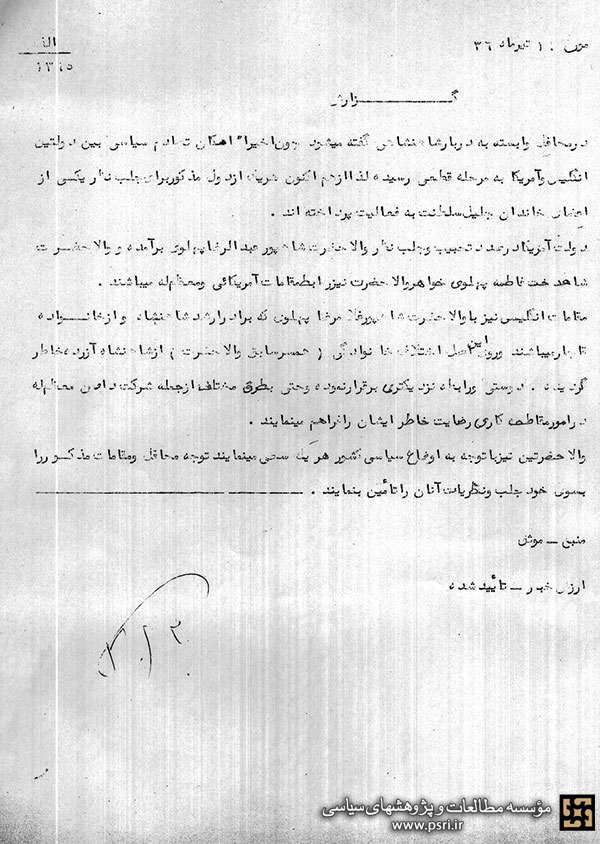 مورخ : ۱ تیرماه ۳۶
الف
۱۳۱۵
گــــــزارش
در محافل وابسته به دربار شاهنشاهی گفته میشود چون اخیراً امکان تصادم سیاسی بین دولتین
انگلیس و آمریکا به مرحله قطعی رسیده لذا از هم اکنون هریک از دول مذکور برای جلب نظر یکی از
اعضای خاندان جلیل سلطنت به فعالیت پرداخته اند .
دولت آمریکا در صدد تحبیب و جلب نظر والاحضرت شاهپور عبدالرضا پهلوی برآمده و والاحضرت
شاهدخت فاطمه پهلوی خواهر والاحضرت نیز رابط مقامات آمریکائی و معظم‌له میباشند .
مقامات انگلیسی نیز با والاحضرت شاهپور غلامرضا پهلوی که برادر ارشد شاهنشاه و از خانـــواده
قاجار میباشند و روی این اصل اختلاف خانوادگی ( همسر سابق والاحضرت ) از شاهنشاه آزرده خاطر
گردیده . دوستی و رابطه نزدیکتری برقرار نموده و حتی بطرق مختلف از جمله شرکت دادن معظم‌له
در امور مقاطعه کاری رضایت خاطر ایشان را فراهم مینمایند .
والاحضرتین نیز با توجه به اوضاع سیاسی کشور هر یک سعی مینمایند توجه محافل و مقامات مذکور را
بسوی خود جلب و نظریات آنان را تأمین بنمایند .
منبع ـ موثق
ارزش خبر ـ تأیید شده
مؤسسه مطالعات و پژوهشهای سیاسی
www.psri.ir